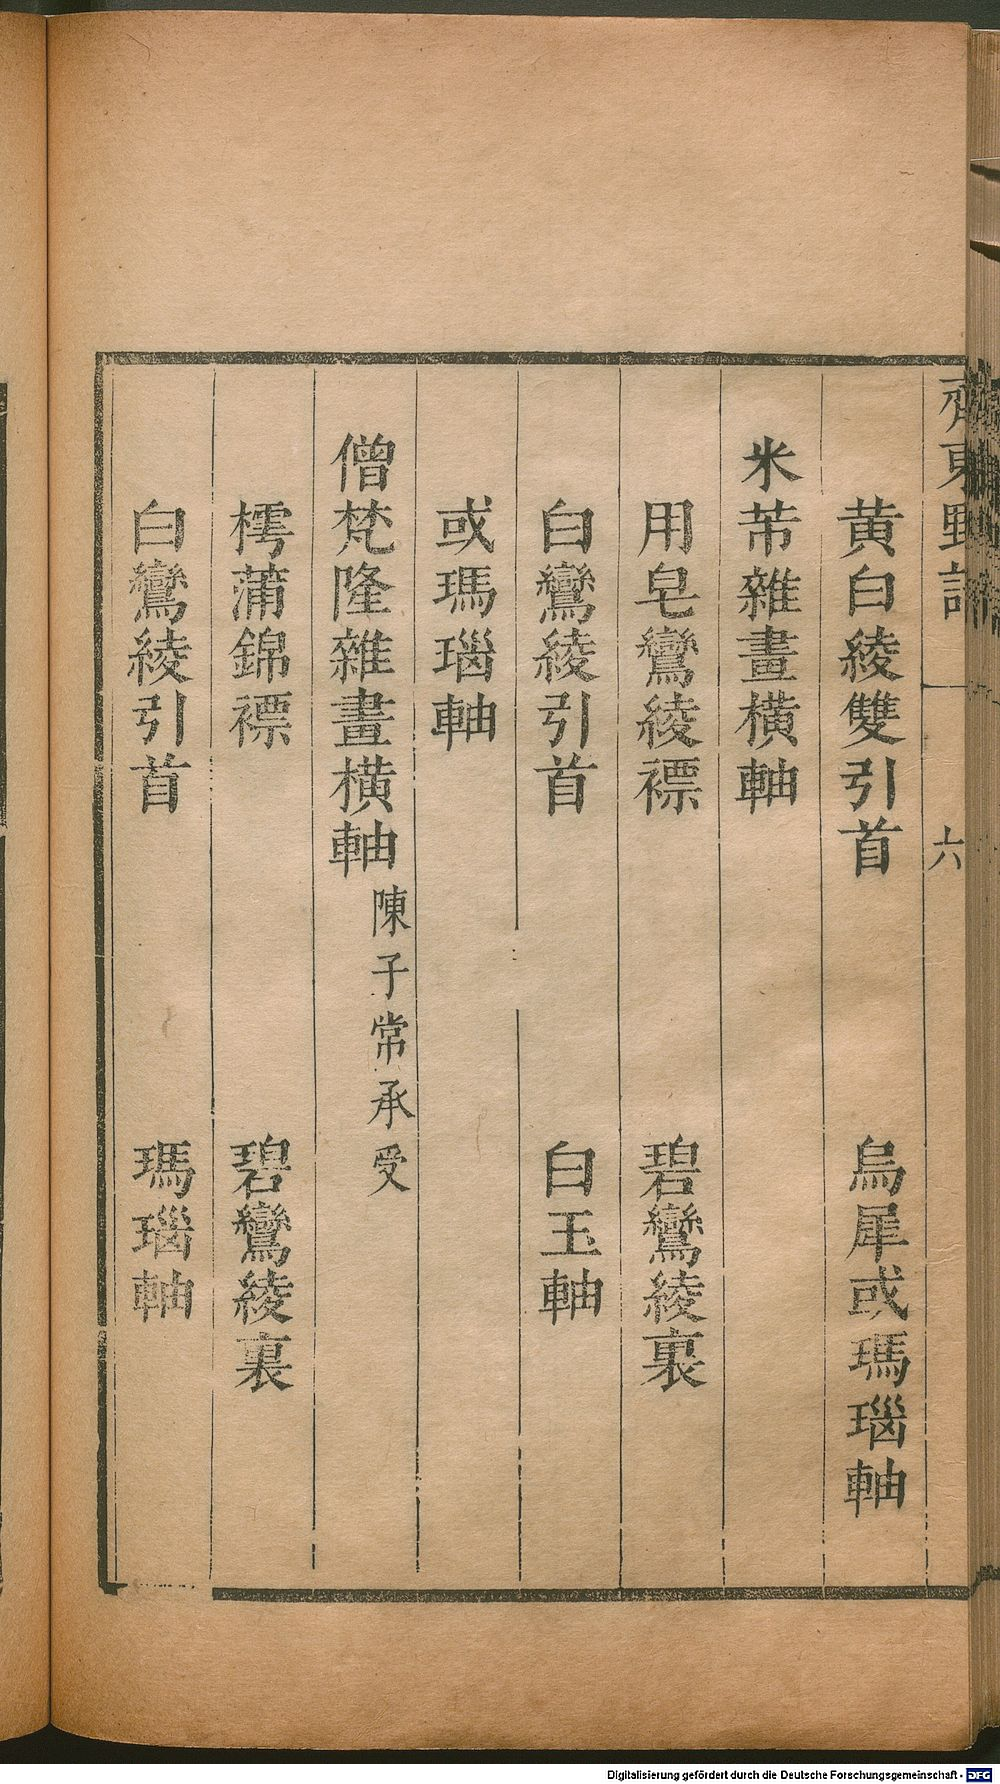 齊東野語
六
黄白綾雙引首　烏犀或瑪瑙軸
米芾雜畫橫軸
用皂鸞綾褾　碧鸞綾裏
白鸞綾引首　白玉軸
或瑪瑙軸
僧梵隆雜畫橫軸陳子常承受
樗蒲錦褾　碧鸞綾裏
白鸞綾引首　瑪瑙軸
Digitalisierung gefördert durch die Deutsche Forschungsgemeinschaft - DFG